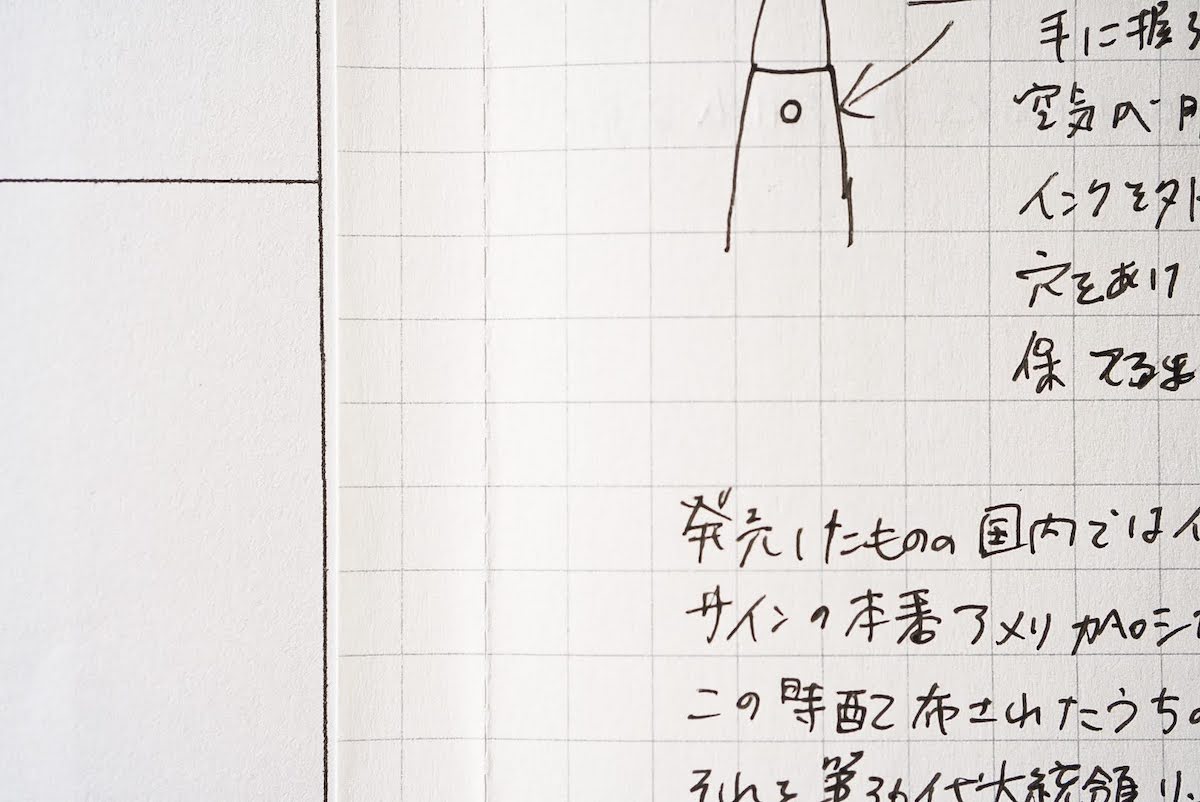 手に握る
空気が
インクを外
穴をあけ
保てる
発売したものの国内では
サインの本番アメリカへ
この時配布されたうちの
それを第36代大統領リ